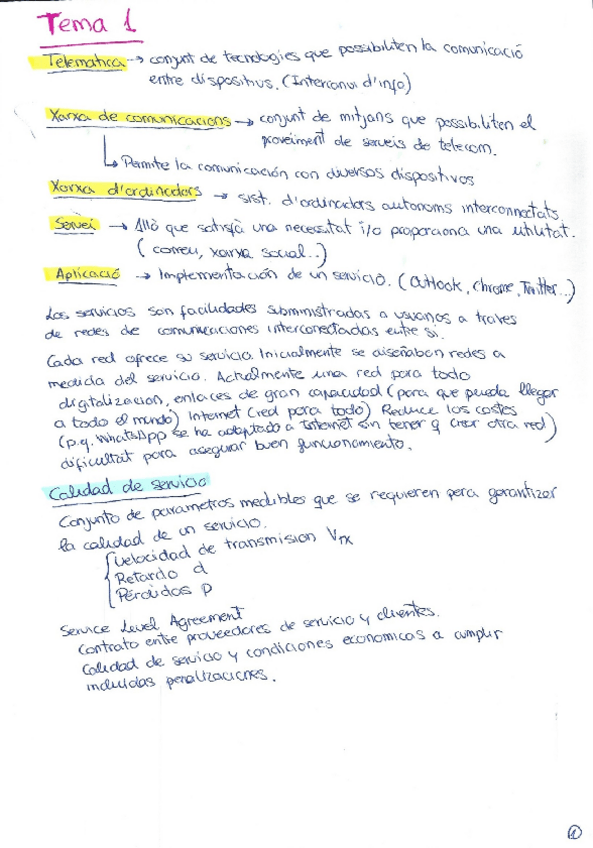 Tema 1
Telemàtica → conjunt de tecnologies que possibiliten la comunicació
entre dispositius. (Intercanvi d'info)
Xarxa de comunicacions → conjunt de mitjans que possibiliten el
proveïment de serveis de telecom.
↳ Permite la comunicación con diversos dispositivos
Xarxa d'ordinadors → sist. d'ordinadors autonoms interconnectats.
Servei → Allò que satisfà una necessitat i/o proporciona una utilitat.
( correu, xarxa social..)
Aplicació → Implementación de un servicio. (Outlook, Chrome, Twitter...)
Los servicios son facilidades subministradas a usuarios a traves
de redes de comunicaciones interconectadas entre si.
Cada red ofrece su servicio. Inicialmente se diseñaban redes a
medida del servicio. Actualmente una red para todo
digitalizacion, enlaces de gran capacidad (para que pueda llegar
a todo el mundo) Internet (red para todo) Reduce los costes
(p.q. WhatsApp se ha adaptado a Internet sin tener q crear otra red)
dificultat para asegurar buen funcionamiento.
Calidad de servicio
Conjunto de parametros medibles que se requieren para garantizar
la calidad de un servicio.
Velocidad de transmision VTX
Retardo d
Pérdidas p
Service Level Agreement
Contrato entre proveedores de servicio y clientes.
Calidad de servicio y condiciones economicas a cumplir
incluidas penalizaciones.
1